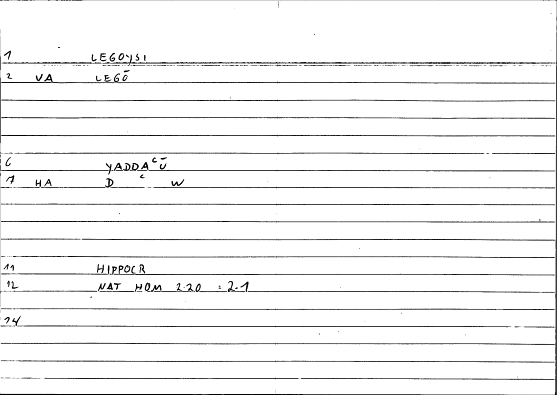 1 LEGOYSI
2 VA LEGŌ
6 YADDAʿŪ
7 HA D ʿ W
11 HIPPOCR
12 NAT HOM 2.20 : 2.1
14